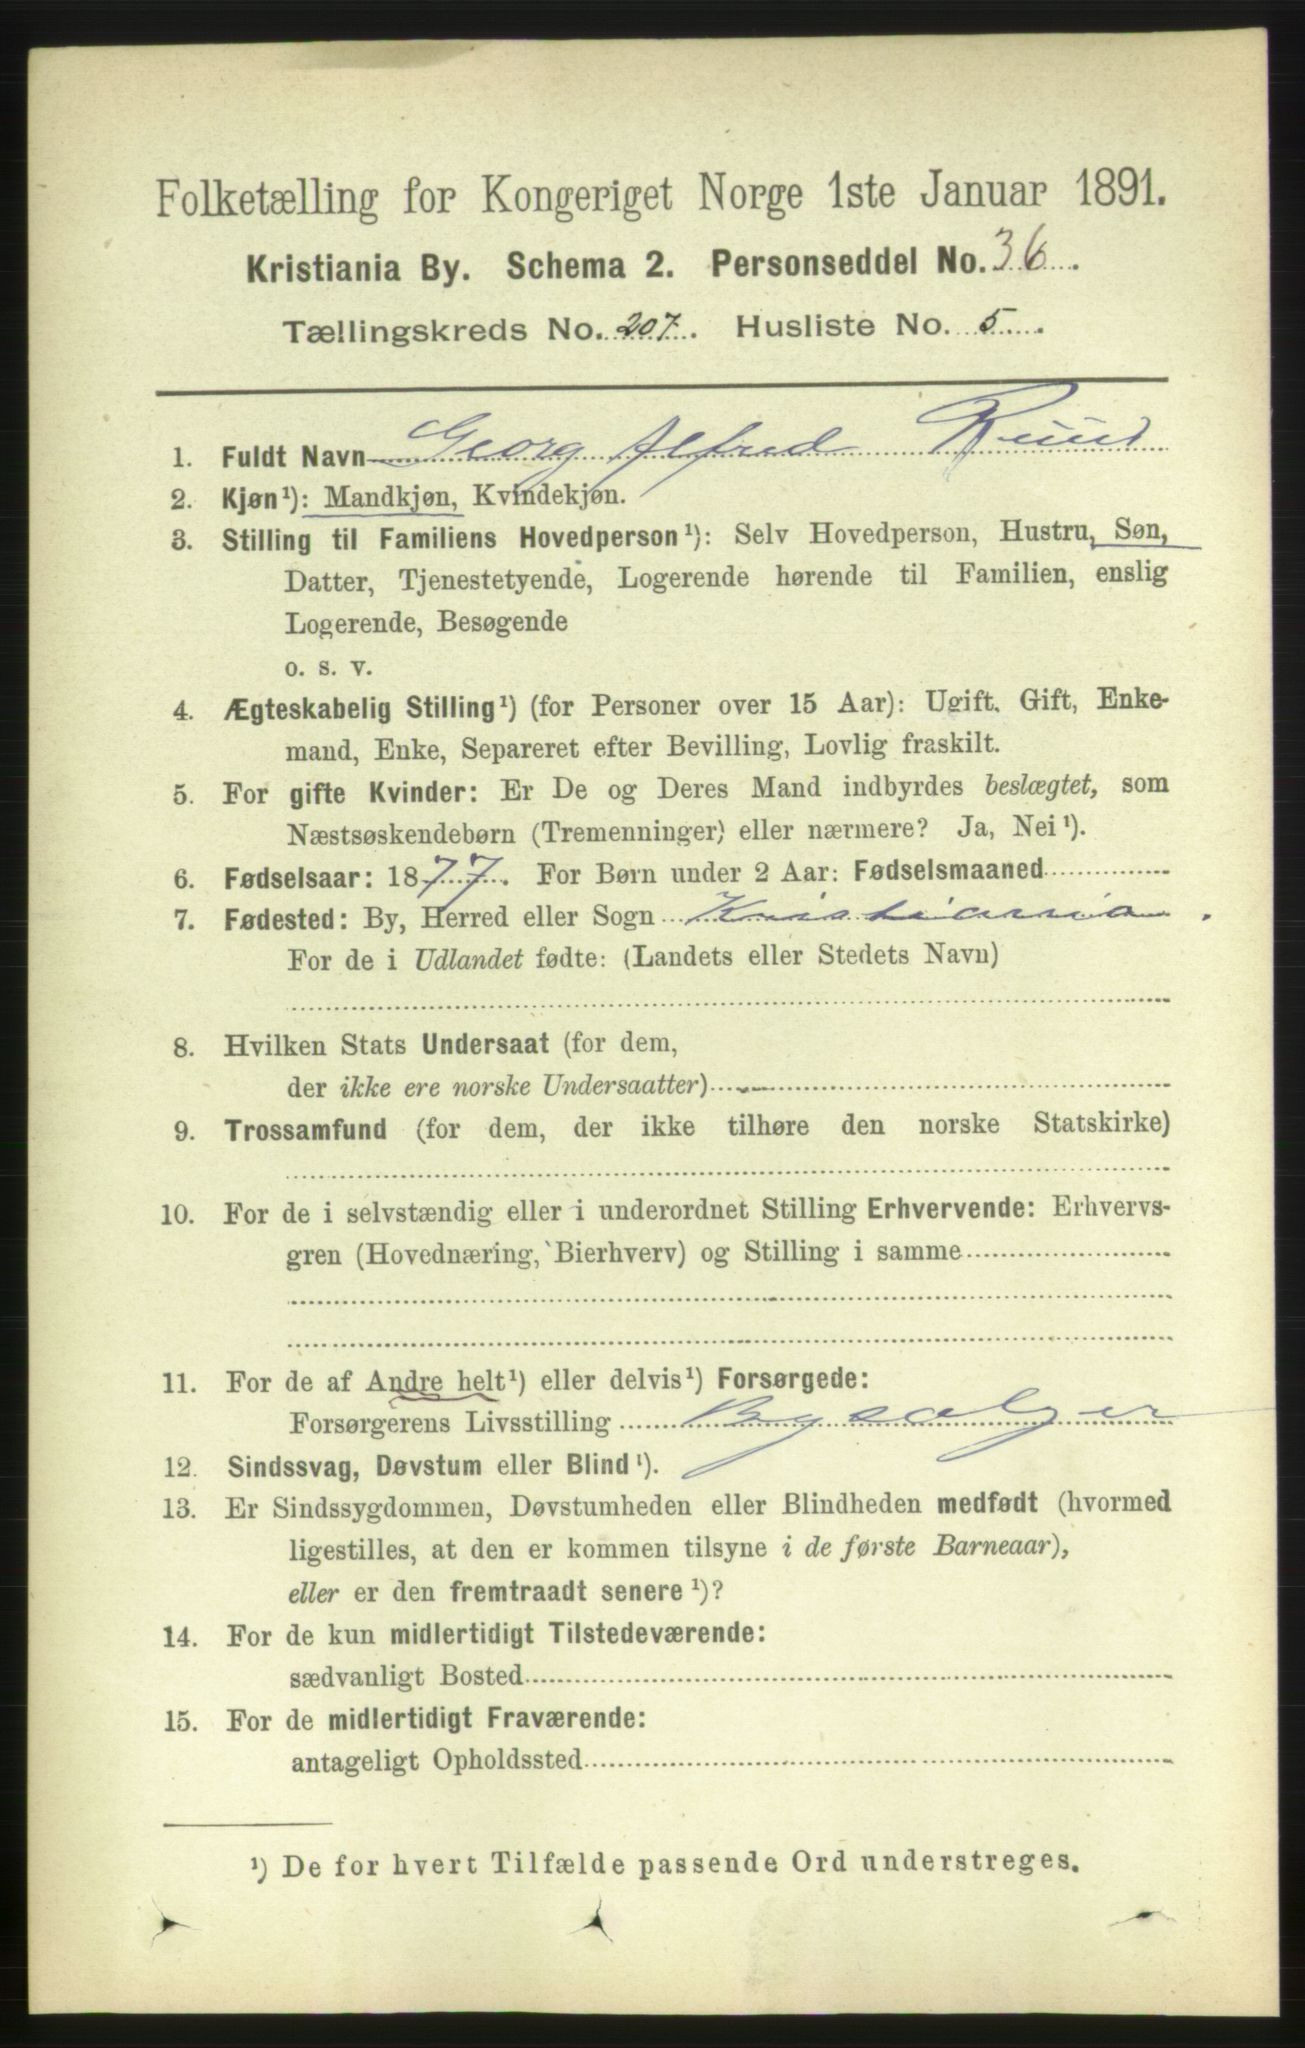 Folketælling for Kongeriget Norge 1ste Januar 1891.
Kristiania By. Schema 2. Personseddel No. 36.
Tællingskreds No. 207. Husliste No. 5.
1. Fuldt Navn Georg Alfred Ruud
2. Kjøn¹): Mandkjøn, Kvindekjøn.
3. Stilling til Familiens Hovedperson¹): Selv Hovedperson, Hustru, Søn,
Datter, Tjenestetyende, Logerende hørende til Familien, enslig
Logerende, Besøgende
o. s. v.
4. Ægteskabelig Stilling¹) (for Personer over 15 Aar): Ugift. Gift, Enke-
mand, Enke, Separeret efter Bevilling, Lovlig fraskilt.
5. For gifte Kvinder: Er De og Deres Mand indbyrdes beslægtet, som
Næstsøskendebørn (Tremenninger) eller nærmere? Ja, Nei¹).
6. Fødselsaar: 1877. For Børn under 2 Aar: Fødselsmaaned
7. Fødested: By, Herred eller Sogn Kristiania.
For de i Udlandet fødte: (Landets eller Stedets Navn)
8. Hvilken Stats Undersaat (for dem,
der ikke ere norske Undersaatter)
9. Trossamfund (for dem, der ikke tilhøre den norske Statskirke)
10. For de i selvstændig eller i underordnet Stilling Erhvervende: Erhvervs-
gren (Hovednæring, Bierhverv) og Stilling i samme
11. For de af Andre helt¹) eller delvis¹) Forsørgede:
Forsørgerens Livsstilling
12. Sindssvag, Døvstum eller Blind¹).
13. Er Sindssygdommen, Døvstumheden eller Blindheden medfødt (hvormed
ligestilles, at den er kommen tilsyne i de første Barneaar),
eller er den fremtraadt senere¹)?
14. For de kun midlertidigt Tilstedeværende:
sædvanligt Bosted
15. For de midlertidigt Fraværende:
antageligt Opholdssted
¹) De for hvert Tilfælde passende Ord understreges.